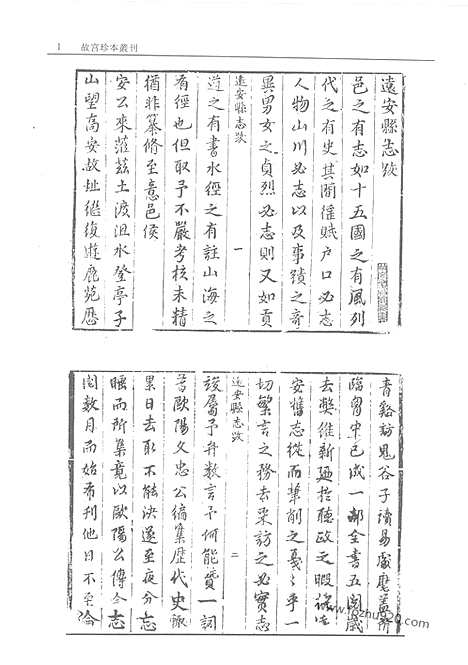 1 故宫珍本叢刊
遠安縣志跋
邑之有志如十五國之有風列
代之有史其間徭賦户口必志
人物山川必志以及事蹟之奇
異男女之貞烈必志則又如貢
遠安縣志跋 一
道之有書水經之有註山海之
有經也但取予不嚴考核未精
猶非纂脩至意邑侯
安公來蒞茲土渡沮水登亭子
山望高安故址繼復遊鹿苑歷
青谿訪鬼谷子讀易處麾蓋所
臨胷中已成一部全書五閲歲
去弊維新廼於聽政之暇
安舊志從而筆削之戛戛乎一
切繁言之務去采訪之必實志
遠安縣志跋 二
竣屬予弁數言予何能贊一詞
昔歐陽文忠公編集歷代史
累日去取不能決遂至夜分忘
睡而所集竟以歐陽公傳今志
閲數月而始肴刊他日不至淪